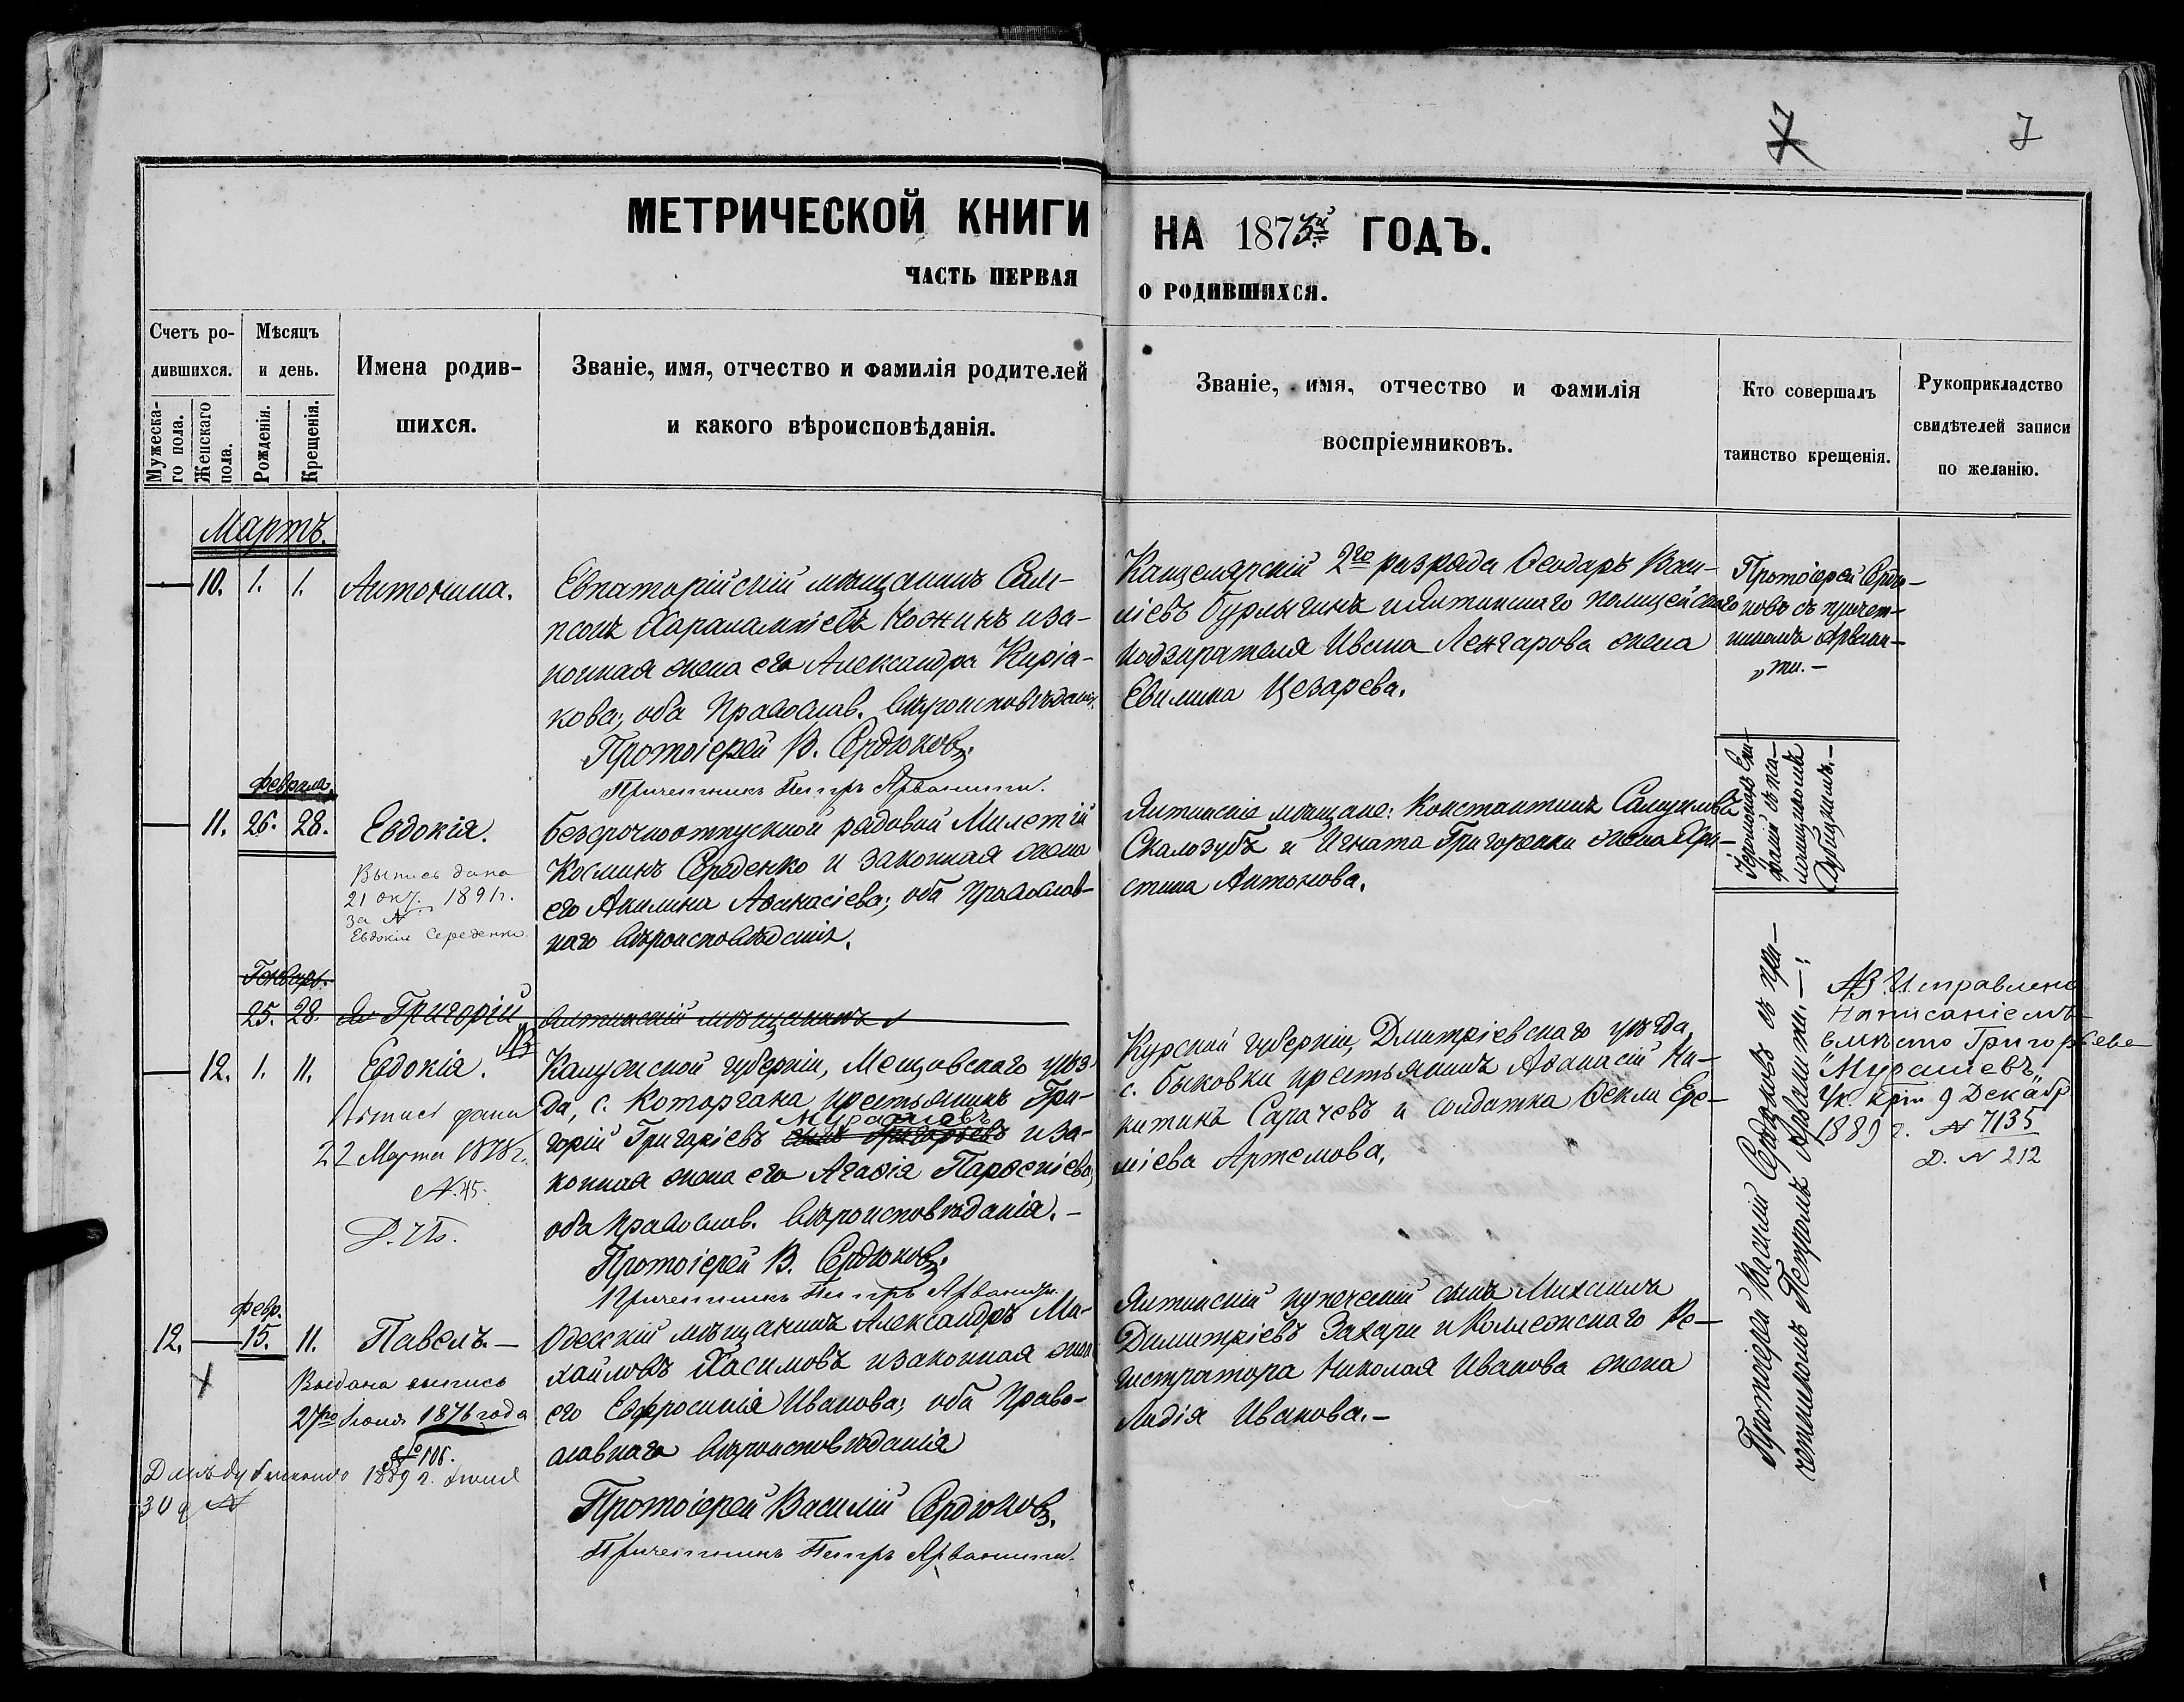 7
МЕТРИЧЕСКОЙ КНИГИ НА 1873й ГОДЪ.
ЧАСТЬ ПЕРВАЯ О РОДИВШИХСЯ.
Счетъ ро-
дившихся.
Мужеска-
го пола.
Женскаго
пола.
Мѣсяцъ
и день.
Рожденія.
Крещенія.
Имена родив-
шихся.
Званіе, имя, отчество и фамилія родителей
и какого вѣроисповѣданія.
Званіе, имя, отчество и фамилія
воспріемниковъ.
Кто совершалъ
таинство крещенія.
Рукоприкладство
свидѣтелей записи
по желанію.
Мартъ.
10. 1. 1. Антонина.
Евпаторійскій мѣщанинъ Сам-
псонъ Харалампіевъ иза-
конная жена его Александра Киріа-
кова; оба Православ. вѣроисповѣданія.
Протоіерей В. Сердюковъ.
Причетникъ Петръ Арванити.
Канцелярскій 2го разряда Ѳеодоръ Васи-
ліевъ Бурлыгинъ и Ялтинскаго полицейскаго
надзирателя Ивана Ленгарова жена
Евилина Цезарева.
Протоіерей Сердю-
ковъ съ причет-
никомъ Арвани-
ти.
Февраля
11. 26. 28. Евдокія.
Выпись дана
21 окт. 1891г.
за №
Евдокіи Середенко.
безсрочноотпускной рядовой Милетій
Косминъ Середенко и законная жена
его Акилина Аѳанасіева; оба Православ-
наго вѣроисповѣданія.
Ялтинскіе мѣщане: Константинъ Самуиловъ
Скалозубъ и Игната Григоренки жена Хри-
стина Антонова.
Генваря.
25. 28. Григорій Ялтинскій мѣщанинъ
12. 1. 11. Евдокія.
Выпись дана
22 Марта 1878г.
№. 45.
Калужской губерніи, Мещовскаго уѣз-
да, с. Которгана крестьянинъ Гри-
горій Григоріевъ Мурашевъ иза-
конная жена его Агаѳія Парѳеніева,
оба Православ. вѣроисповѣданія.
Протоіерей В. Сердюковъ.
Причетникъ Петръ Арванити.
Курской губерніи, Дмитріевскаго уѣзда,
с. Быковки крестьянинъ Аѳанасій Ни-
китинъ Сарачевъ и солдатка Ѳекла Ере-
міева Артемова.
Протоіерей Василій Сердюковъ съ при-
четникомъ Петромъ Арванити.
Исправлено
написаніемъ
вмѣсто Григорьева
"Мурашевъ"
Ук. 9 Декабр.
1889 г. № 7135
Д. № 212
Февр.
12. 15. 11. Павелъ.
Выдана выпись
27го Іюня 1876 года
№ 106.
1889 г. Іюня
30 д №
Одесскій мѣщанинъ Александръ Ми-
хайловъ Касимовъ и законная жена
его Евфросинія Иванова; оба Право-
славнаго вѣроисповѣданія
Протоіерей Василій Сердюковъ.
Причетникъ Петръ Арванити.
Ялтинскій купеческій сынъ Михаилъ
Димитріевъ Захари и Коллежскаго Ре-
гистратора Николая Иванова жена
Лидія Иванова.